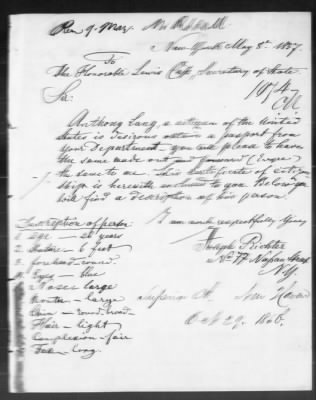 New York May 8th 1857.
To
The Honorable Lewis Cass, Secretary of State
Sir:
Anthony Lang, a citizen of the United
States is desirous obtain a passport from
Your Department - you will please to have
the same made out and forward
the same to me. This certificate of citizen
ship is herewith enclosed to you Below you
will find a description of his person.
Description of person
I am with respectfully Yours
Joseph Richter
No 77 Nassau Street
N.Y.
1. Age — 26 years
2. Stature — 6 feet
3. forehead — round
4. Eyes — blue
5. Nose — large
Mouth — large
Chin — round, broad
Hair — light
Complexion — fair
Face — long.
Superior Ct. New Haven
Oct 29. 1856.